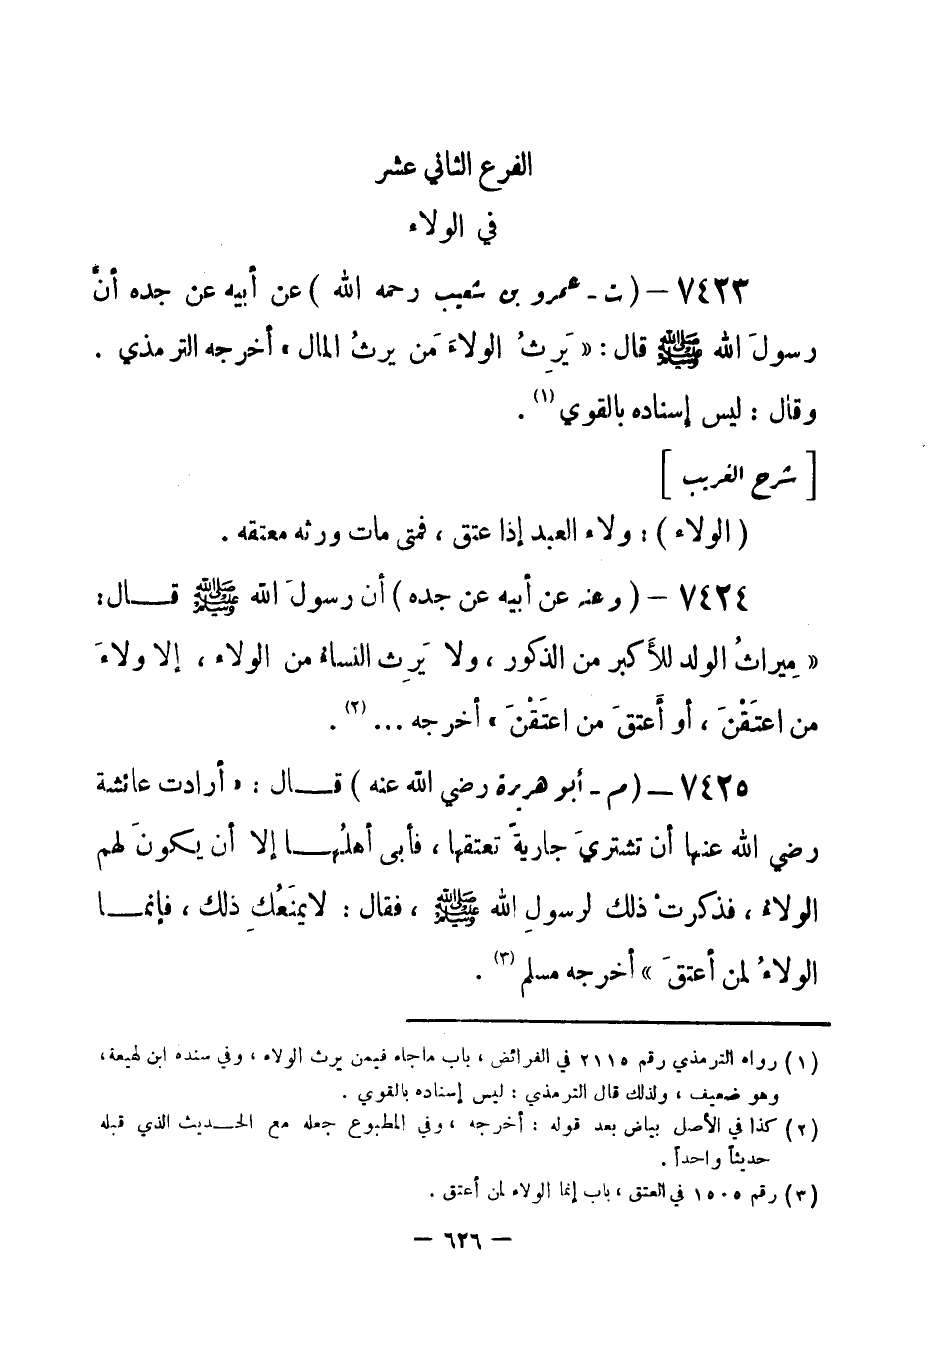 الفرع الثاني عشر
في الولاء
٧٤٢٣ – ( ت - عمرو بن شعيب رحمه الله ) عن أبيه عن جده أنَّ
رسولَ الله ﷺ قال : « يَرِثُ الولاءَ مَن يرثُ المال » أخرجه الترمذي .
وقال : ليس إسناده بالقوي (١) .
[ شرح الغريب ]
( الولاء ) : ولاء العبد إذا عتق ، فمتى مات ورثه معتقه .
٧٤٢٤ – ( وعنه عن أبيه عن جده ) أن رسولَ الله ﷺ قـــال :
« مِيراثُ الولد للأَكبر من الذكور ، ولا يَرِث النساءُ من الولاء ، إلا ولاءَ
من اعتَقْنَ ، أو أَعتقَ من اعتَقْنَ » أخرجه ... (٢) .
٧٤٢٥ – ( م - أبو هريرة رضي الله عنه ) قـــال : « أرادت عائشة
رضي الله عنها أن تشتريَ جاريةً تعتقها ، فأبى أهلُهـــا إلا أن يكونَ لهم
الولاءُ ، فذكرتْ ذلك لرسولِ الله ﷺ ، فقال : لايمنَعُكِ ذلك ، فإنمـــا
الولاءُ لمن أعتقَ » أخرجه مسلم (٣) .
(١) رواه الترمذي رقم ٢١١٥ في الفرائض ، باب ماجاء فيمن يرث الولاء ، وفي سنده ابن لهيعة ،
وهو ضعيف ، ولذلك قال الترمذي : ليس إسناده بالقوي .
(٢) كذا في الأصل بياض بعد قوله : أخرجه ، وفي المطبوع جعله مع الحـديث الذي قبله
حديثاً واحداً .
(٣) رقم ١٥٠٥ في العتق ، باب إنما الولاء لمن أعتق .
– ٦٢٦ –